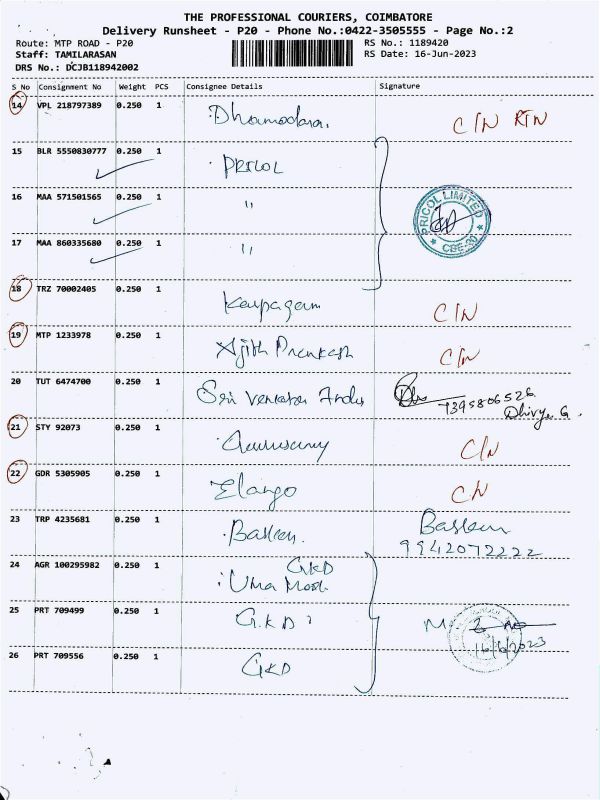 THE PROFESSIONAL COURIERS, COIMBATORE
Delivery Runsheet - P20 - Phone No.:0422-3505555 - Page No.:2
Route: MTP ROAD - P20 RS No.: 1189420
Staff: TAMILARASAN RS Date: 16-Jun-2023
DRS No.: DCJB118942002
S No Consignment No Weight PCS Consignee Details Signature
14 VPL 218797389 0.250 1 Dhamodara. C/N RTN
15 BLR 5550830777 0.250 1 PRICOL
16 MAA 571501565 0.250 1 "
PRICOL LIMITED CBE-30
17 MAA 860335680 0.250 1 "
18 TRZ 70002405 0.250 1 Karpagam C/N
19 MTP 1233978 0.250 1 Ajith Prankash C/N
20 TUT 6474700 0.250 1 Sri Venkatsa 7395806526
Dhivya G.
21 STY 92073 0.250 1 C/N
22 GDR 5305905 0.250 1 Elango C/N
23 TRP 4235681 0.250 1 Basken. Baskem
9942072222
24 AGR 100295982 0.250 1 GKD
Uma
25 PRT 709499 0.250 1 G.K.D
16/6/2023
26 PRT 709556 0.250 1 GKD